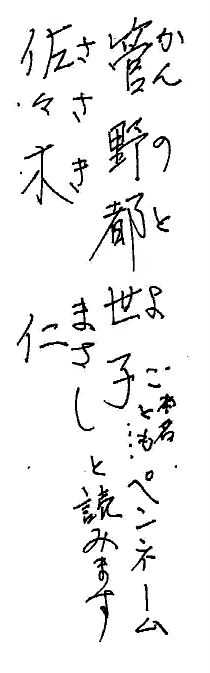 菅野都世子 ペンネーム
かんのとよこ
本名とも…
佐々木 仁 と読みます
ささき まさし